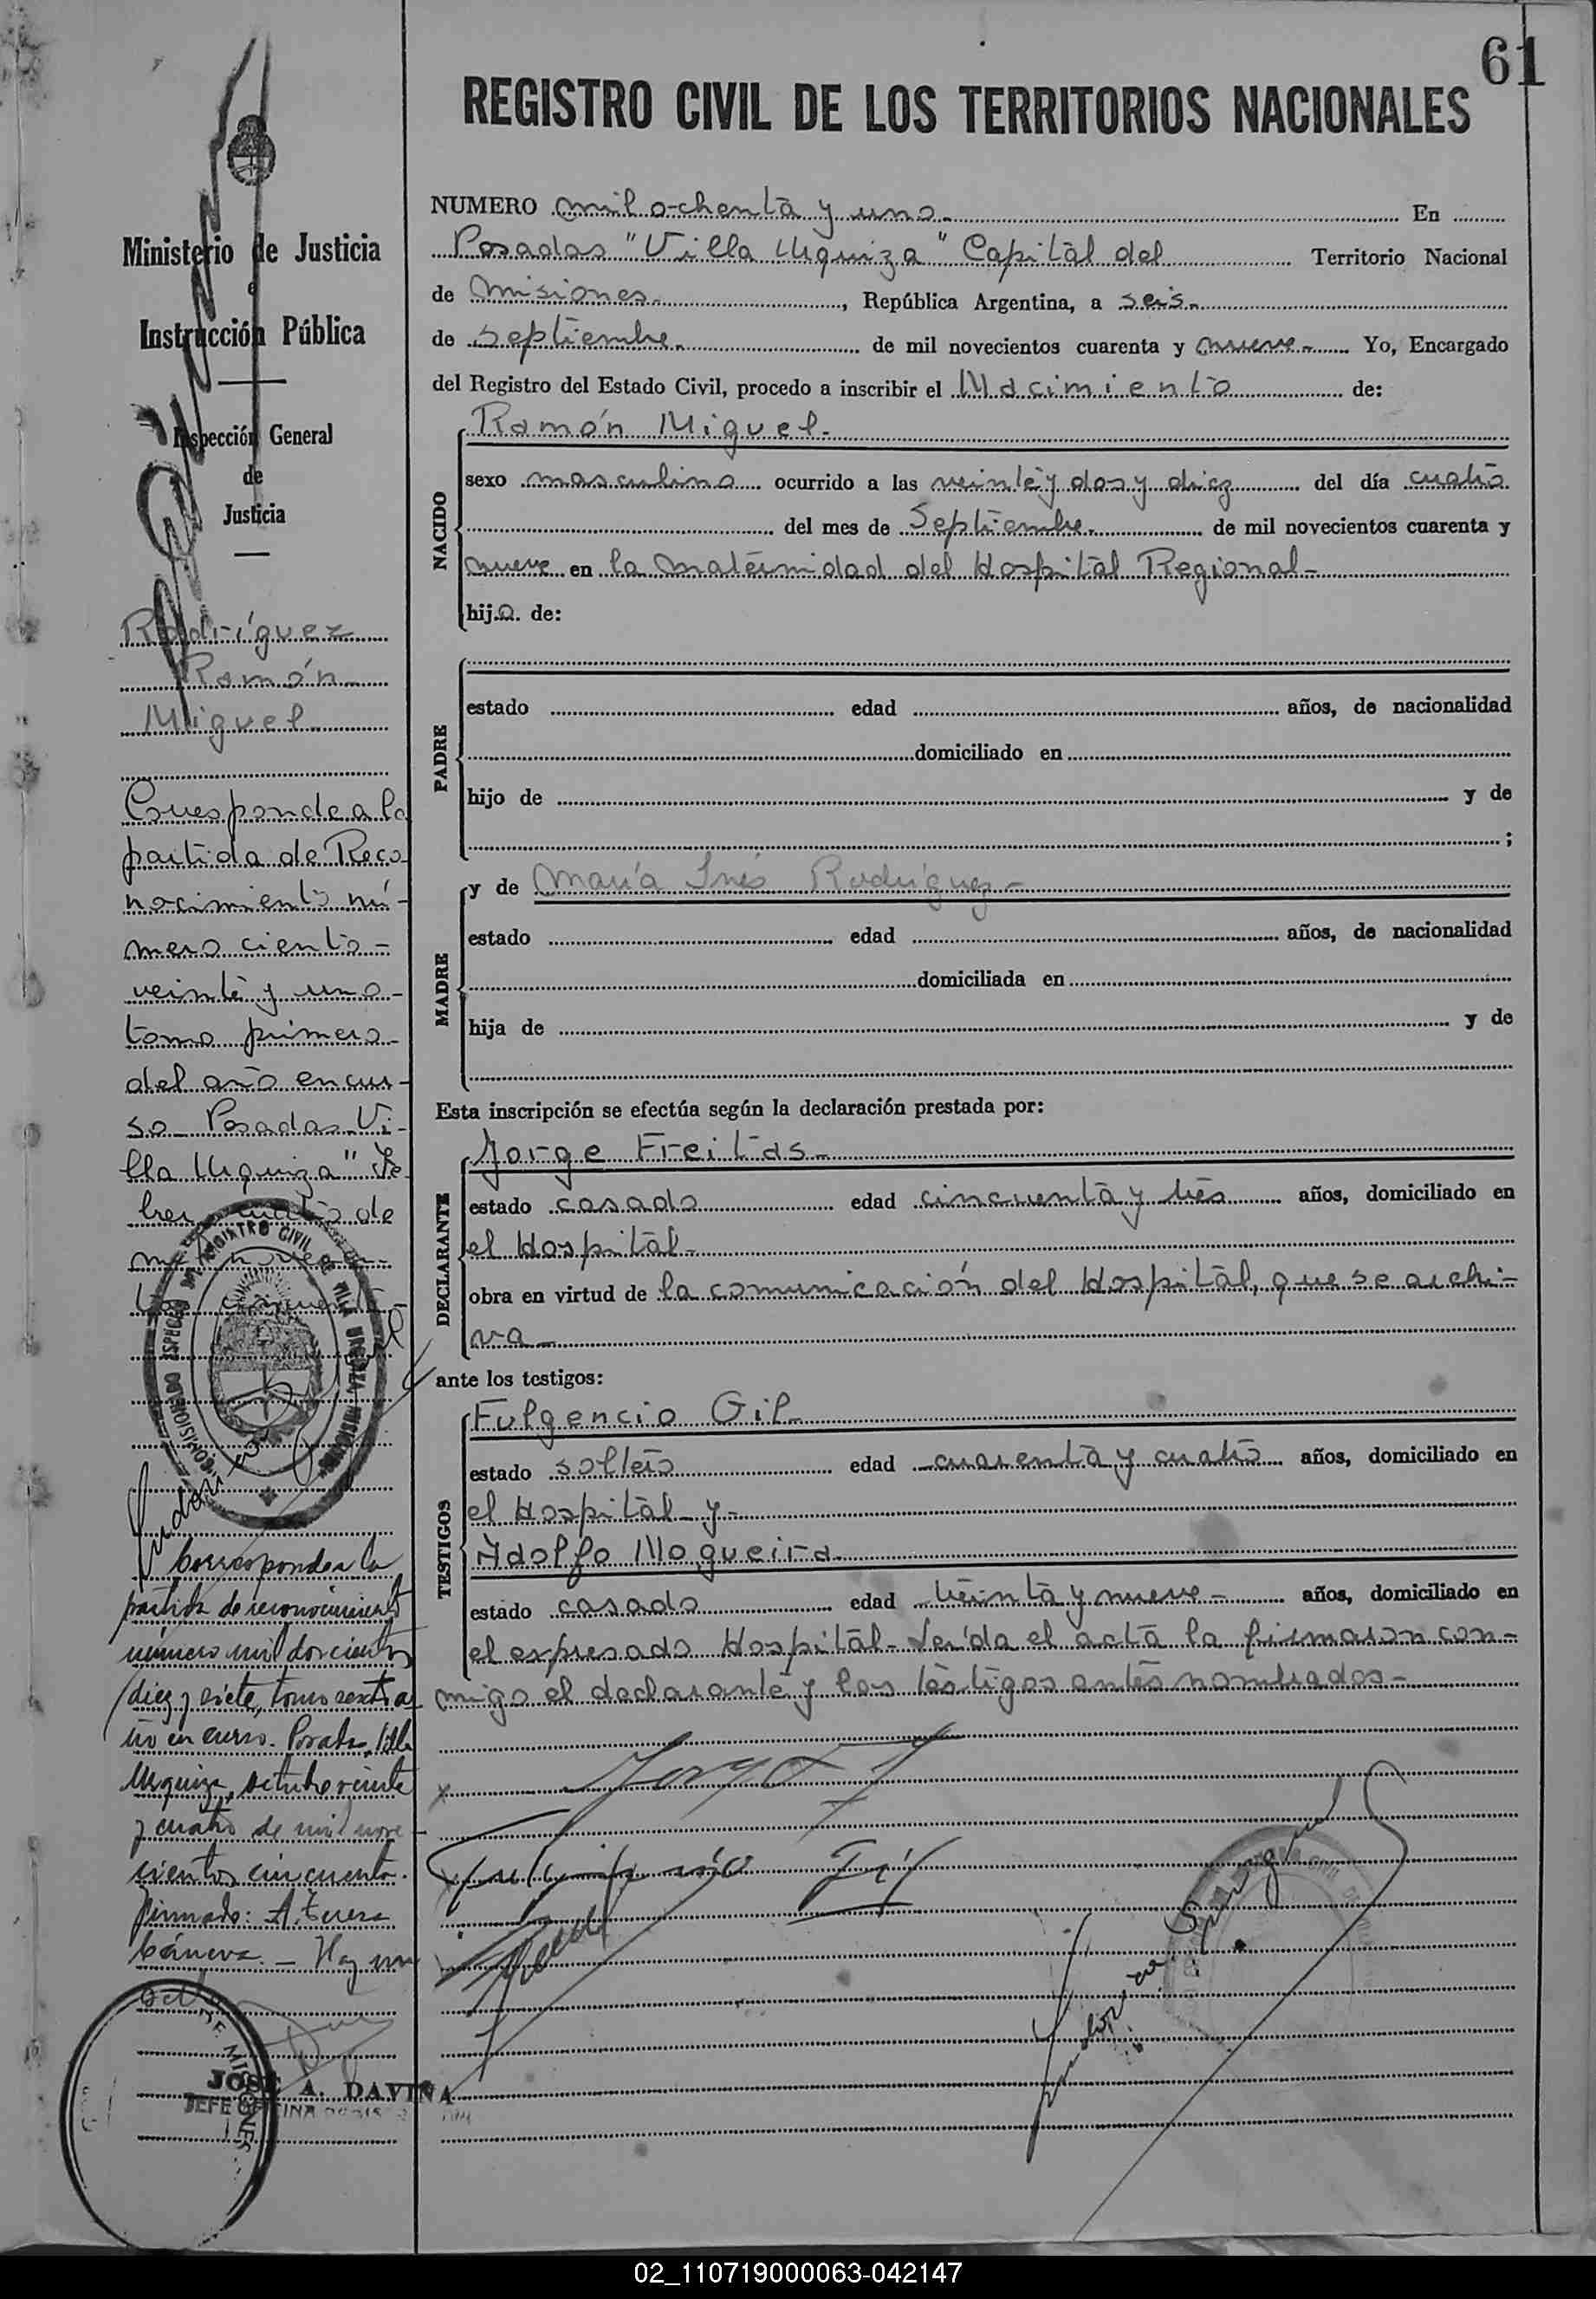 61
REGISTRO CIVIL DE LOS TERRITORIOS NACIONALES
Ministerio de Justicia
e
Instrucción Pública
Inspección General
de
Justicia
Rodríguez
Ramón
Miguel
Corresponde a la
partida de Reco
nocimiento nú-
mero ciento-
veinte y uno-
tomo primero-
del año en cur-
so_ Posadas_Vi-
lla Urquiza" Fe-
brero cuatro de
COMISIONADO ESPECIAL REGISTRO CIVIL DE VILLA URQUIZA MISIONES
Corresponde a la
partida de reconocimiento
número mil doscientos
diez y siete, tomo sexto a
ño en curso. Posadas, Villa
Urquiza, octubre veinte
y cuatro de mil nove
cientos cincuenta.
firmado: A. Teresa
Cánova. _ Hay un
sello
DE MISIONES
JOSE A. DAVIÑA
JEFE OFICINA
NUMERO mil ochenta y uno. En
Posadas "Villa Urquiza" Capital del Territorio Nacional
de Misiones. , República Argentina, a seis.
de septiembre. de mil novecientos cuarenta y nueve. Yo, Encargado
del Registro del Estado Civil, procedo a inscribir el Nacimiento de:
NACIDO
Ramón Miguel.
sexo masculino ocurrido a las veinte y dos y diez del día cuatro
del mes de Septiembre. de mil novecientos cuarenta y
nueve en la maternidad del Hospital Regional-
hijo de:
PADRE
estado edad años, de nacionalidad
domiciliado en
hijo de y de
;
MADRE
y de María Inés Rodríguez-
estado edad años, de nacionalidad
domiciliada en
hija de y de
Esta inscripción se efectúa según la declaración prestada por:
DECLARANTE
Jorge Freitas-
estado casado edad cincuenta y tres años, domiciliado en
el Hospital-
obra en virtud de la comunicación del Hospital, que se archi-
va_
ante los testigos:
TESTIGOS
Fulgencio Gil-
estado soltero edad cuarenta y cuatro años, domiciliado en
el Hospital_y-
Adolfo Nogueira.
estado casado edad treinta y nueve- años, domiciliado en
el expresado Hospital- Leída el acta la firmaron con-
migo el declarante y los testigos antes nombrados-
Jorge F
Fulgencio Gil
02_110719000063-042147